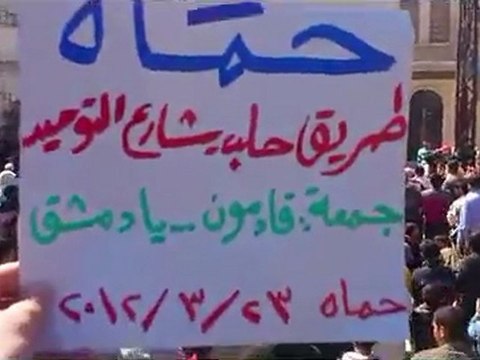 حماه
طريق حلب شارع التوحيد
جمعة: قادمون -- يا دمشق
حماه ٢٣/٣/٢٠١٢